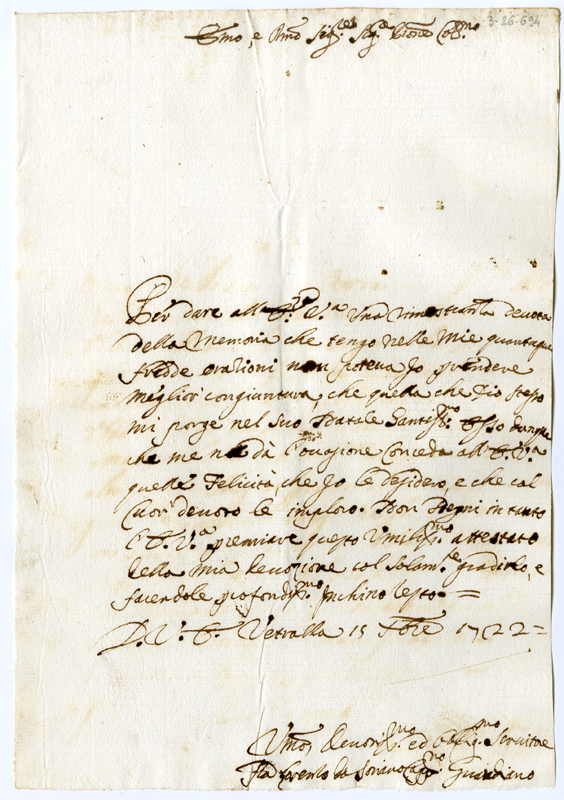 3-26-694
Emo, e Rmo Sig.re Sig.e Prone Col.mo
Per dare all E. V.a una rimostranza devota
della memoria che tengo nelle mie quantunque
fredde orazioni non poteva Io prendere
meglior congiuntura, che quella che Dio stesso
mi porge nel suo Natale Santiss.mo Esso dunque
che me ne dà l'ocasione conceda all E. V.a
quelle Felicità, che Io le desidero e che col
Cuor devoto le imploro. Don Degni in tanto
l'E. V.a premiare questo Umiliss.mo attestato
della mia devozione col solam.te gradirlo, e
facendole profondiss.mo Inchino resto
D. V. E. Vetralla 15 Xbre 1722
Umo Devotiss.mo ed Obblig.mo Servitore
Fra Lorento da Soriano Capp.no Guardiano